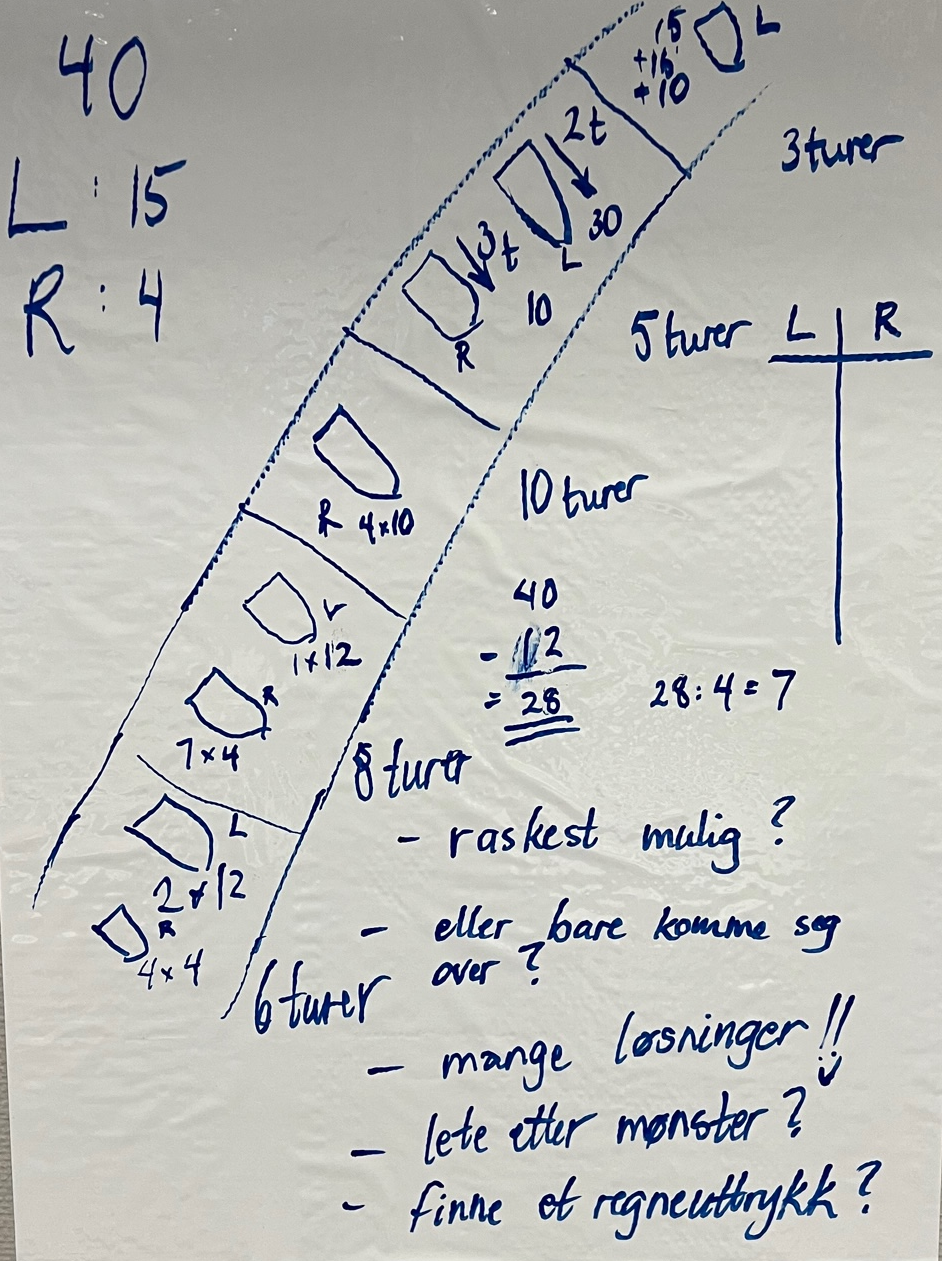 40
L : 15
R : 4
15
+15
+10
L
3 turer
2t
30
L
3t
10
R
5 turer
L R
R 4x10
10 turer
L
1x12
R
7x4
40
- 12
= 28
28:4=7
8 turer
L
2x12
R
4x4
6 turer
- raskest mulig?
- eller bare komme seg
over?
- mange løsninger!!
- lete etter mønster?
- finne et regneuttrykk?